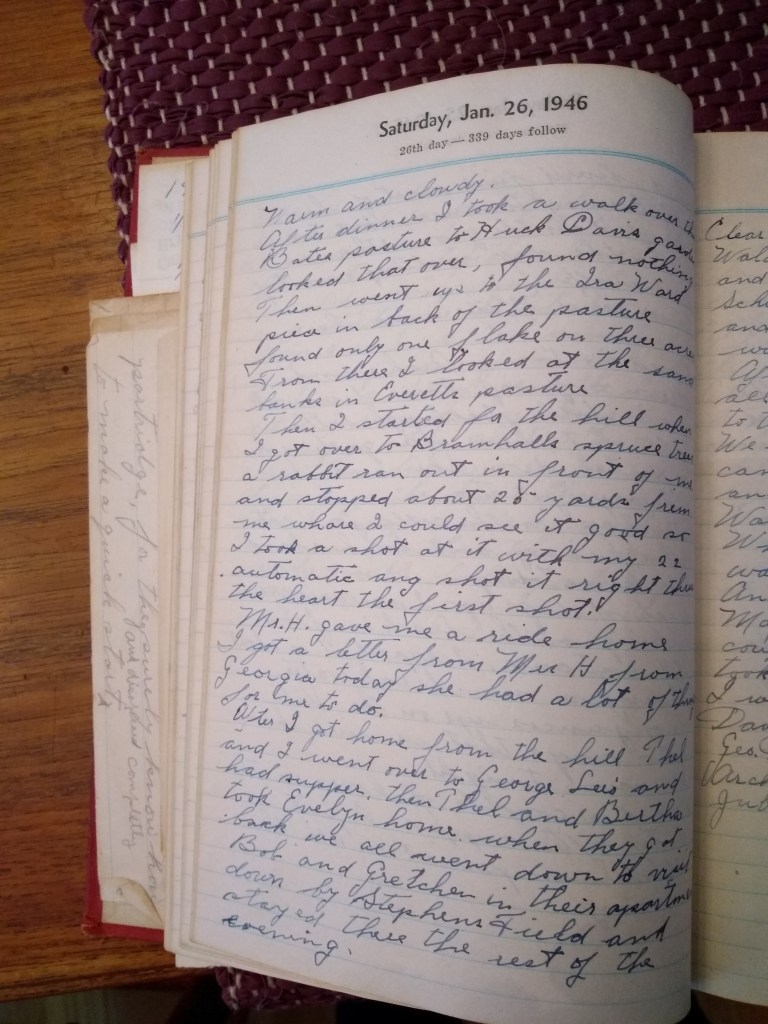 Saturday, Jan. 26, 1946
26th day — 339 days follow
Warm and cloudy.
After dinner I took a walk over th
Bates pasture to Huck Davis garde
looked that over, found nothing
Then went up to the Ira Ward
piece in back of the pasture
found only one flake on three acre
From there I looked at the sand
banks in Everetts pasture
Then I started for the hill when
I got over to Bramhalls spruce trees
a rabbit ran out in front of me
and stopped about 25 yards from
me whare I could see it good so
I took a shot at it with my 22
automatic ang shot it right thru
the heart the first shot!
Mr. H. gave me a ride home
I got a letter from Mrs H from
Georgia today she had a lot of thin
for me to do.
After I got home from the hill Thel
and I went over to George Lees and
had supper. then Thel and Bertha
took Evelyn home. when they got
back we all went down to visit
Bob and Gretchen in their apartme
down by Stephens Field and
stayed there the rest of the
evening.
partridge, for they surely know how
to make a quick start
and completely
Clear
Wal
and
Sch
and
wo
Af
all
to t
We
can
an
Wa
Wh
wa
An
Ma
cou
took
I w
Dav
Geo.
Arch
Jub